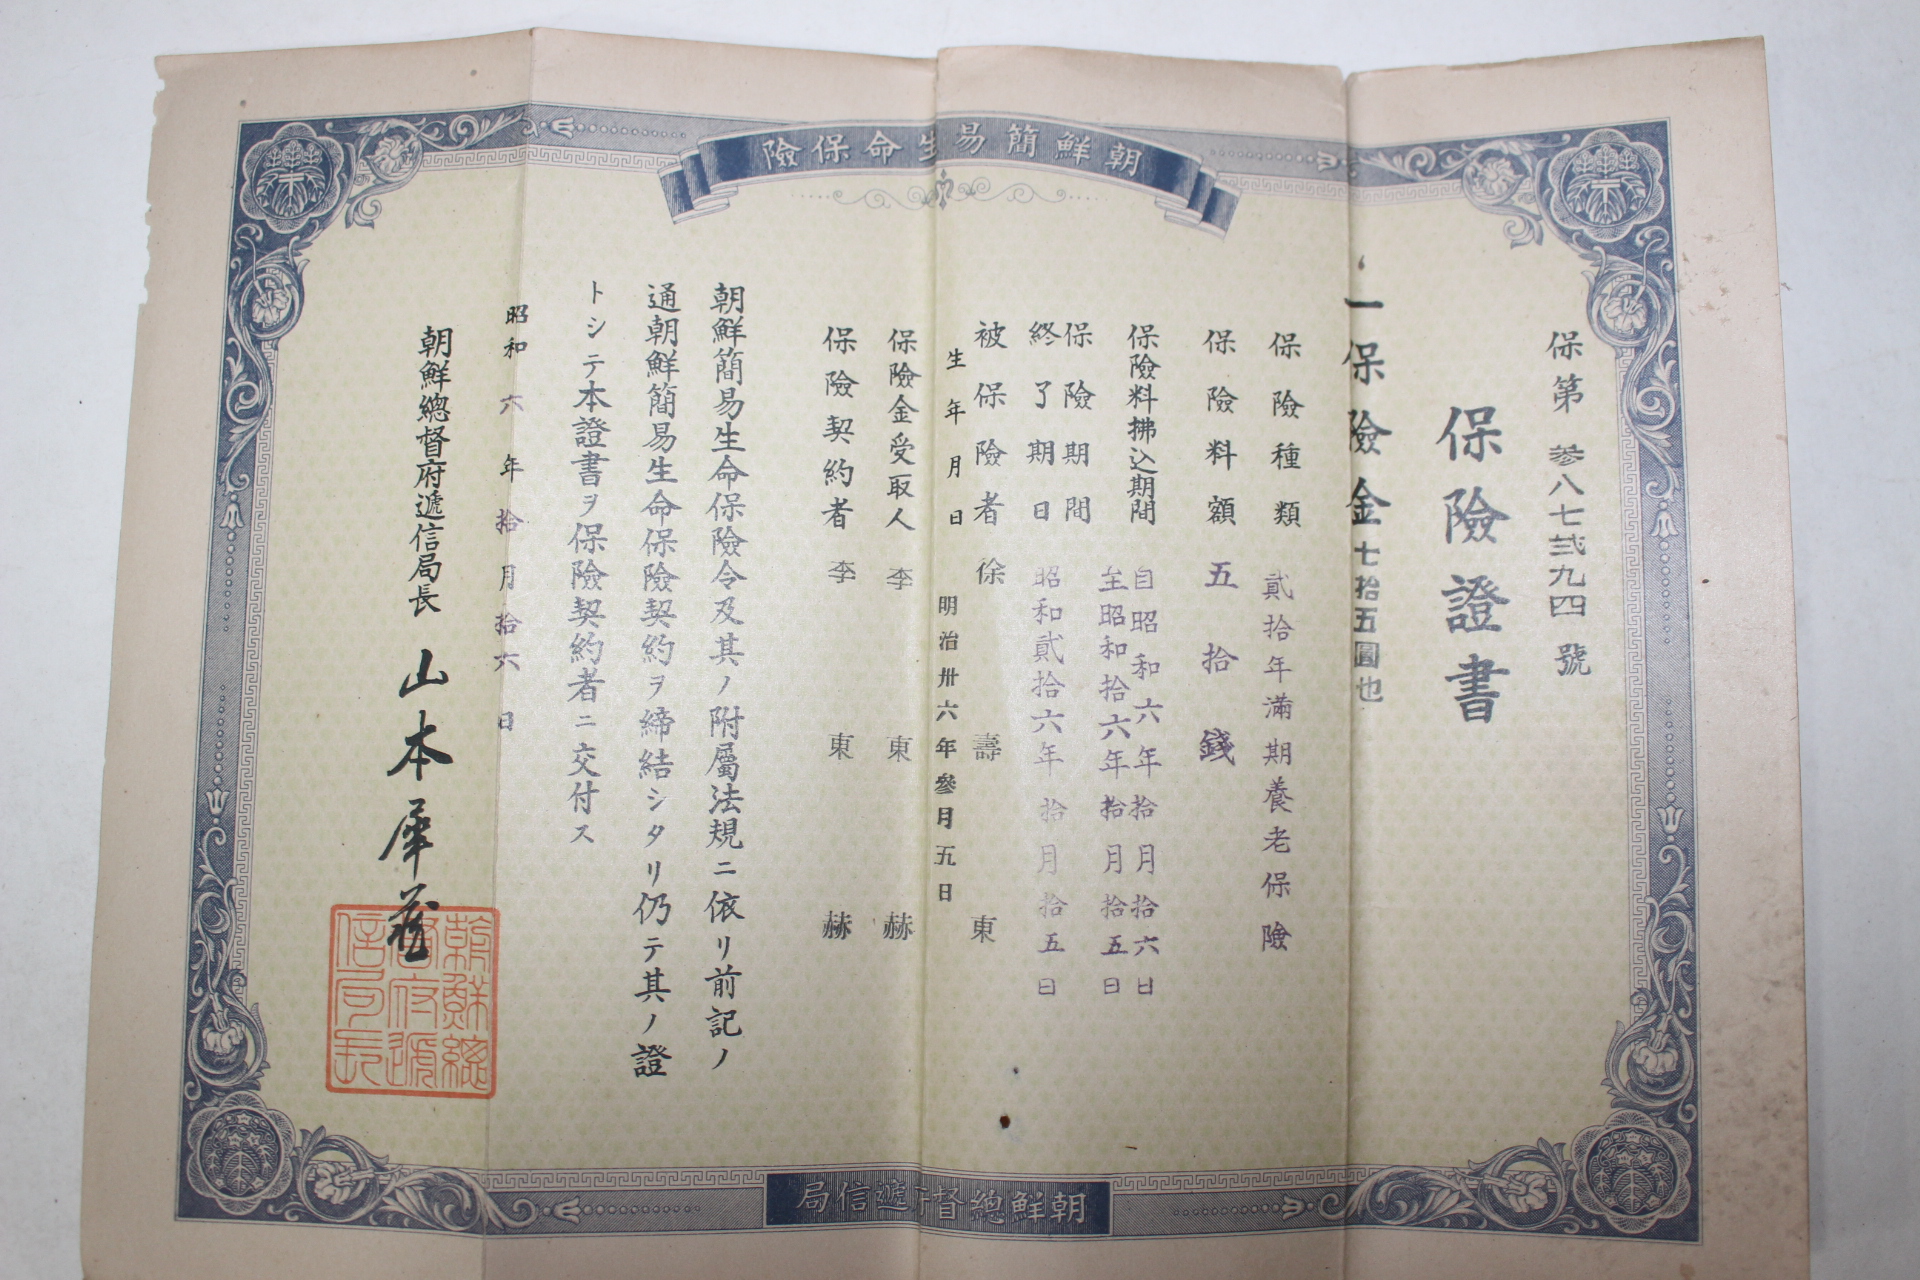 朝鮮簡易生命保險
保第參八七弍九四號
保險證書
一保險金七拾五圓也
保險種類 貳拾年滿期養老保險
保險料額 五拾錢
保險料拂込期間 自昭和六年拾月拾六日
至昭和拾六年拾月拾五日
保險期間
終了期日 昭和貳拾六年拾月拾五日
被保險者 徐壽東
生年月日 明治卅六年參月五日
保險金受取人 李東赫
保險契約者 李東赫
朝鮮簡易生命保險令及其ノ附屬法規ニ依リ前記ノ
通朝鮮簡易生命保險契約ヲ締結シタリ仍テ其ノ證
トシテ本證書ヲ保險契約者ニ交付ス
昭和六年拾月拾六日
朝鮮總督府遞信局長 山本犀藏
朝鮮總督府遞信局長
朝鮮總督府遞信局